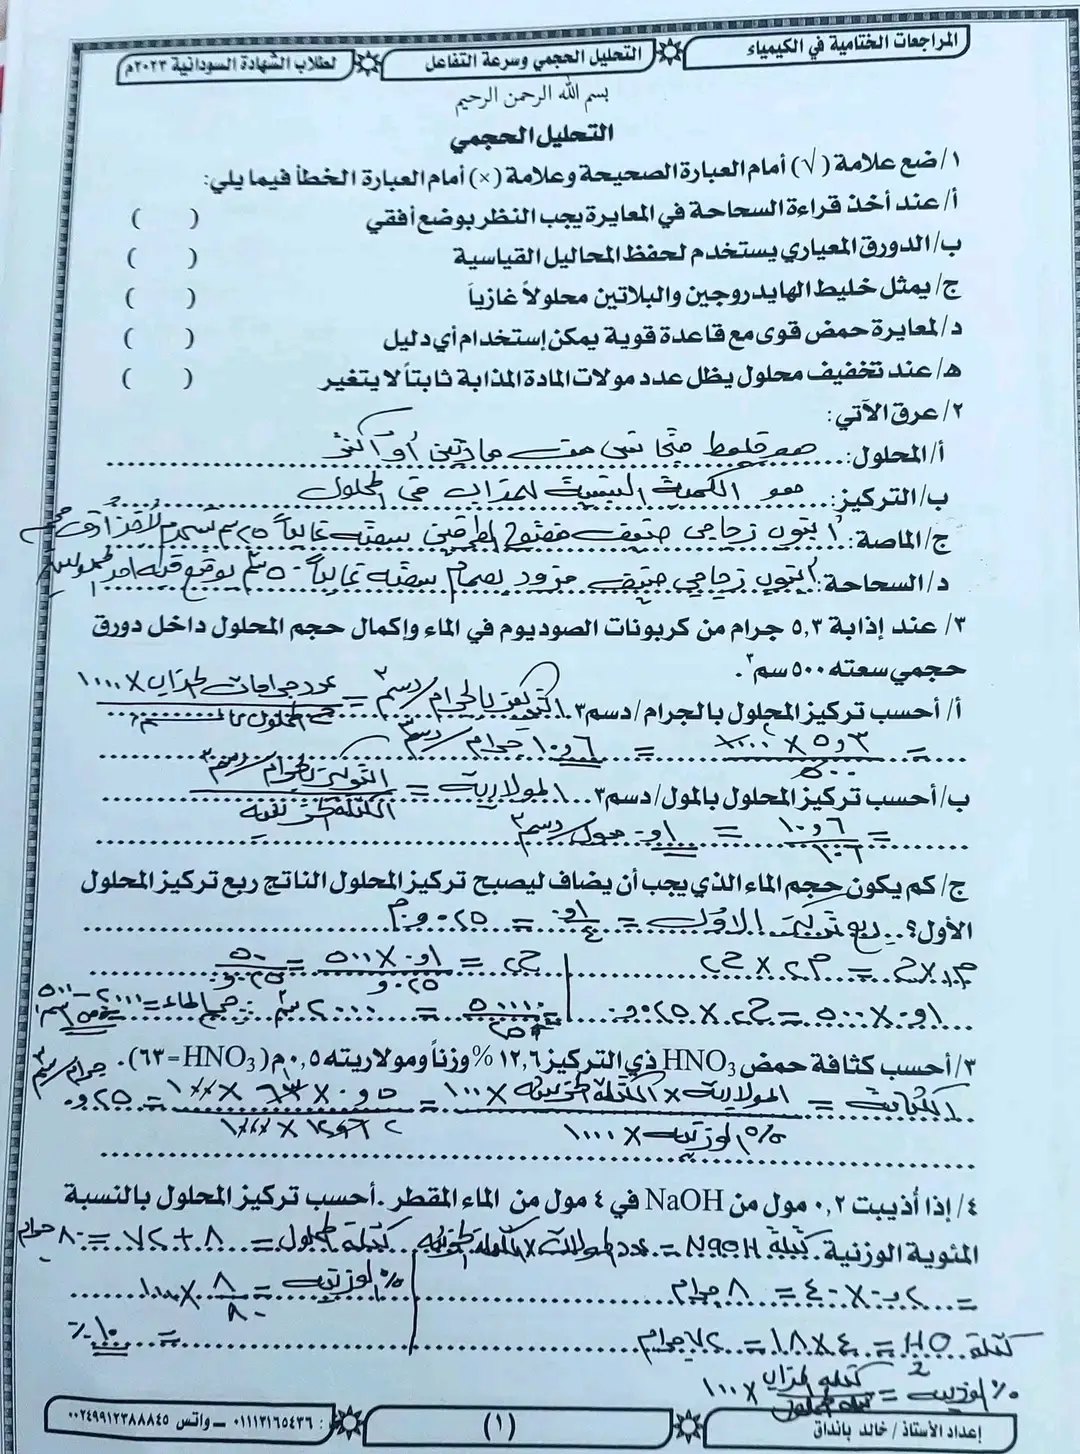 المراجعات الختامية في الكيمياء
التحليل الحجمي وسرعة التفاعل
لطلاب الشهادة السودانية ٢٠٢٣م
بسم الله الرحمن الرحيم
التحليل الحجمي
١/ ضع علامة (√) أمام العبارة الصحيحة وعلامة (×) أمام العبارة الخطأ فيما يلي:
أ/ عند أخذ قراءة السحاحة في المعايرة يجب النظر بوضع أفقي ( )
ب/ الدورق المعياري يستخدم لحفظ المحاليل القياسية ( )
ج/ يمثل خليط الهايدروجين والبلاتين محلولاً غازياً ( )
د/ لمعايرة حمض قوى مع قاعدة قوية يمكن إستخدام أي دليل ( )
ه/ عند تخفيف محلول يظل عدد مولات المادة المذابة ثابتاً لا يتغير ( )
٢/ عرق الآتي:
أ/ المحلول: هو خليط متجانس من مادتين أو أكثر
ب/ التركيز: هو الكمية النسبية للمذاب في المحلول
ج/ الماصة: أنبوب زجاجي مفتوح الطرفين سعته غالباً ٢٥ سم
د/ السحاحة: أنبوب زجاجي مزود بصمام سعته غالباً ٥٠ سم
٣/ عند إذابة ٥,٣ جرام من كربونات الصوديوم في الماء وإكمال حجم المحلول داخل دورق
حجمي سعته ٥٠٠ سم٣.
أ/ أحسب تركيز المحلول بالجرام/دسم٣. التركيز بالجرام/دسم٣ = عدد جرامات المذاب × ١٠٠٠
حجم المحلول بالسم٣
= ٥,٣ × ١٠٠٠ = ١٠,٦ جرام/دسم٣
٥٠٠
ب/ أحسب تركيز المحلول بالمول/دسم٣. المولارية = التركيز بالجرام/دسم٣
الكتلة الجزيئية
= ١٠,٦ = ٠,١ مول/دسم٣
١٠٦
ج/ كم يكون حجم الماء الذي يجب أن يضاف ليصبح تركيز المحلول الناتج ربع تركيز المحلول
الأول؟ ربع تركيز الأول = ٠,١ = ٠,٠٢٥ م
٤
ح١ × م١ = م٢ × ح٢ ح٢ = ٠,١ × ٥٠٠ = ٥٠
٠,٠٢٥ ٠,٠٢٥
٠,١ × ٥٠٠ = ح٢ × ٠,٠٢٥ = ٢٠٠٠ سم٣ حجم الماء = ٢٠٠٠ - ٥٠٠
٣/ أحسب كثافة حمض HNO₃ ذي التركيز ١٢,٦ % وزناً ومولاريته ٠,٥ م (HNO₃ = ٦٣). جرام/سم٣
الكثافة = المولارية × الكتلة الجزيئية × ١٠٠ = ٠,٥ × ٦٣ × ١٠٠ = ٠,٢٥
% الوزنية × ١٠٠٠ ١٢,٦ × ١٠٠٠
٤/ إذا أذيبت ٠,٢ مول من NaOH في ٤ مول من الماء المقطر. أحسب تركيز المحلول بالنسبة
المئوية الوزنية. كتلة NaOH = عدد المولات × الكتلة الجزيئية كتلة المحلول = ٨ + ٧٢ = ٨٠ جرام
= ٠,٢ × ٤٠ = ٨ جرام % الوزنية = ٨ × ١٠٠
٨٠
كتلة H₂O = ٤ × ١٨ = ٧٢ جرام = ١٠ %
% الوزنية = كتلة المذاب × ١٠٠
كتلة المحلول
إعداد الأستاذ / خالد بانداق
(١)
: ٠١١١٣١٦٥٤٣٦ - واتس ٠٠٢٤٩٩١٢٣٨٨٨٤٥